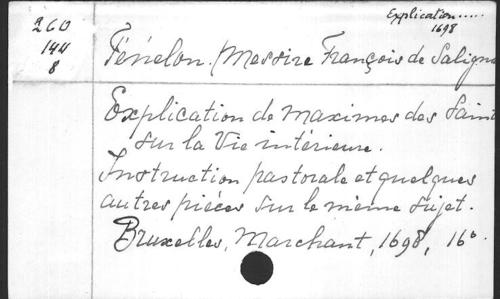 Explication.....
1698
260
144
8
Fénelon. (Messire François de Salign
Explication de maximes des Saint
sur la Vie intérieure.
Instruction pastorale et quelques
autres pièces sur le même sujet.
Bruxelles, Marchant, 1698, 16°